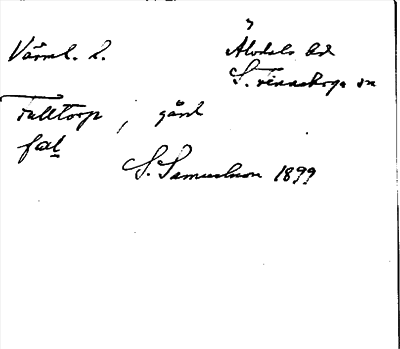 Värml. l. Älvdals hd
S. Finnskoga sn
Falltorp, gård
fal
S. Samuelsson 1899